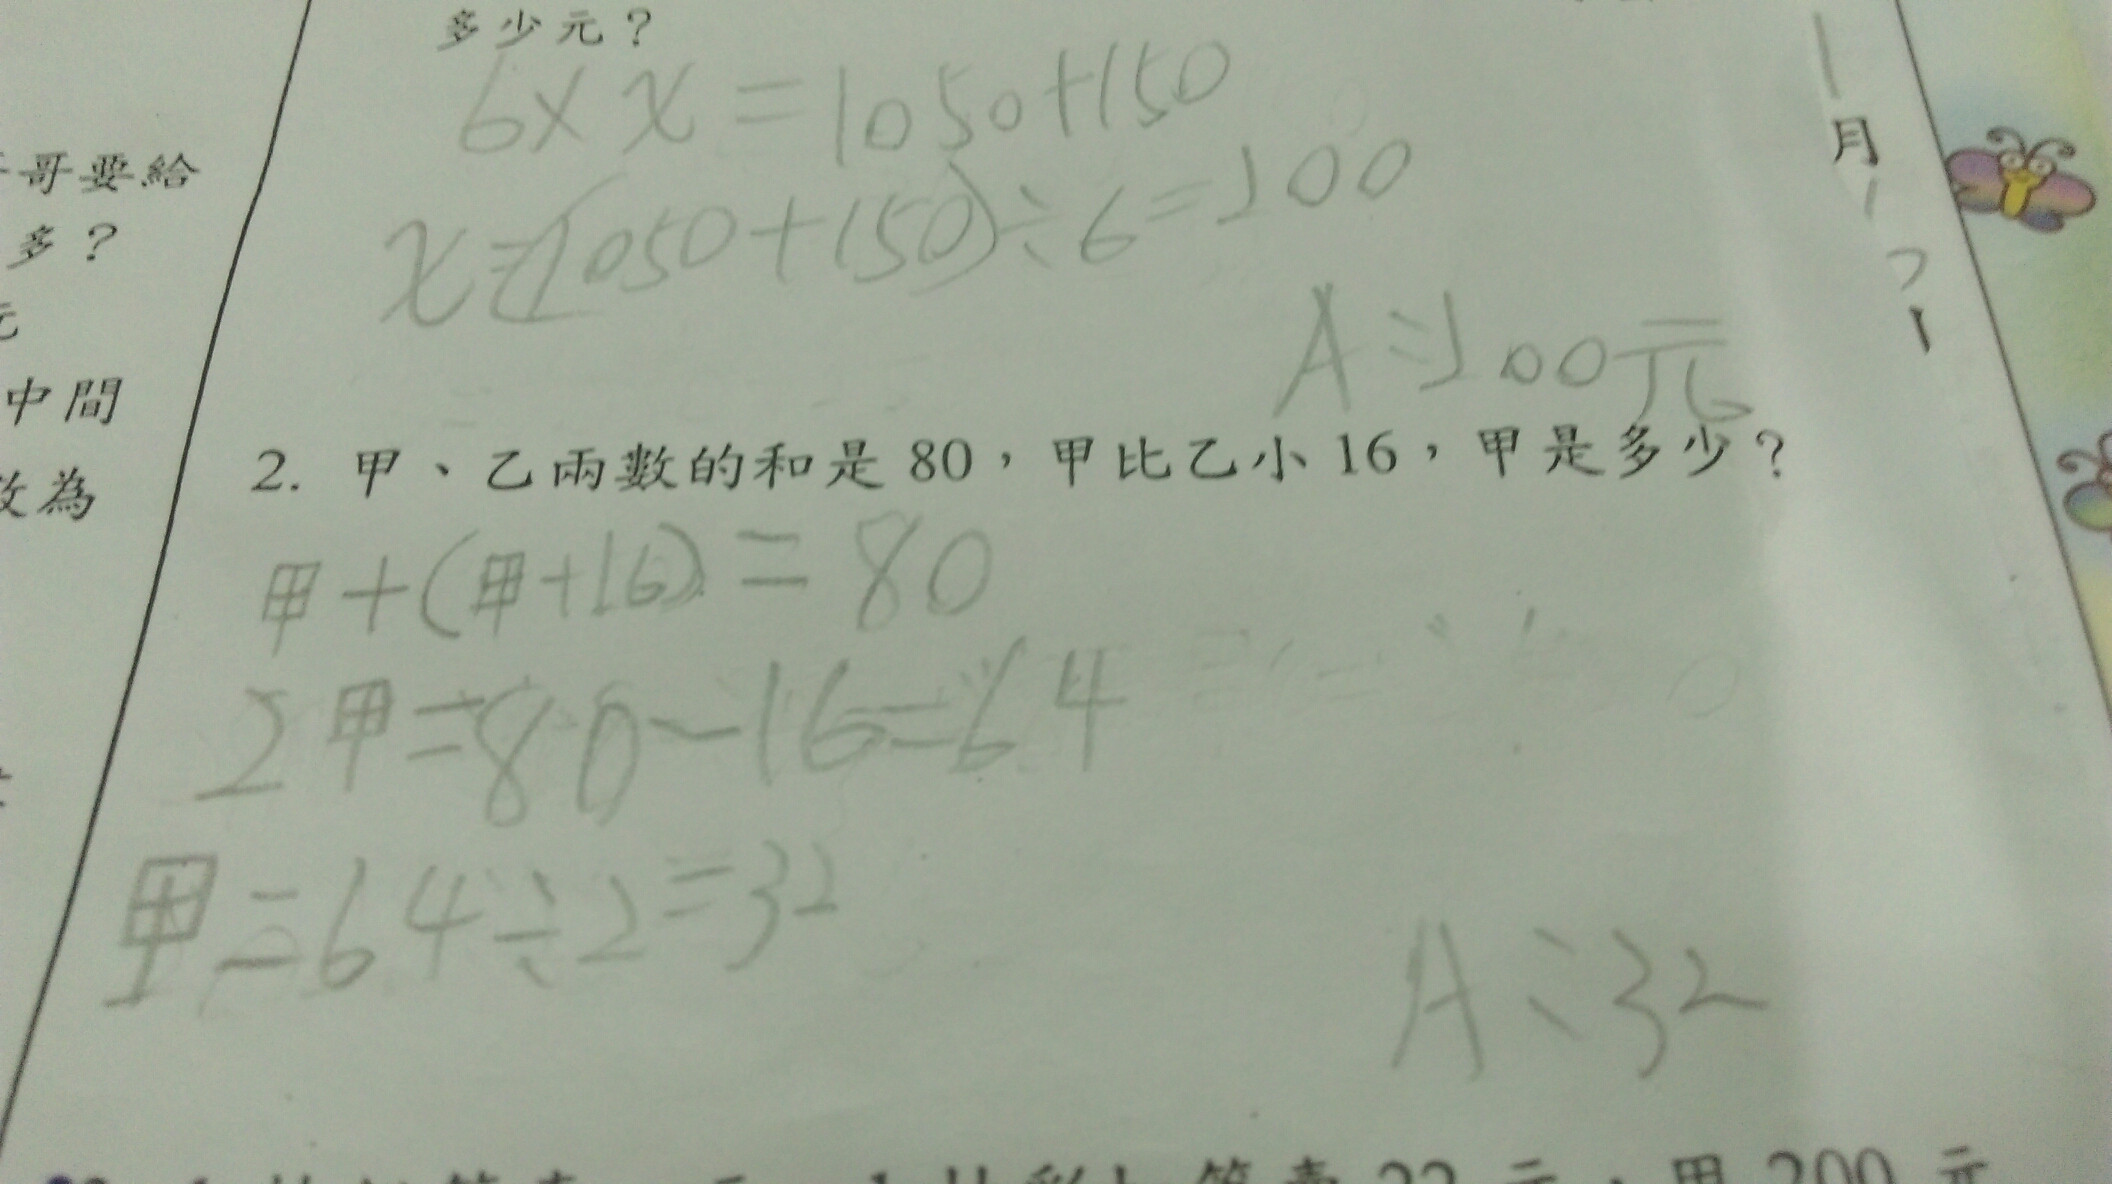 多少元？
6×x=1050+150
x=(1050+150)÷6=200
A：200元
2. 甲、乙兩數的和是80，甲比乙小16，甲是多少？
甲+(甲+16)=80
2甲=80-16=64
甲=64÷2=32
A：32
哥要給
多？
元
中間
改為
月